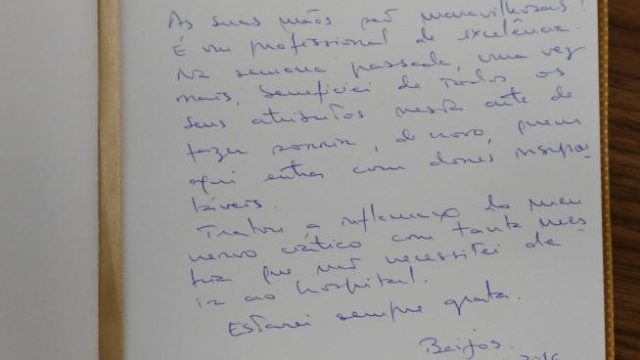 As suas mãos são maravilhosas!
É um profissional de excelência.
Na semana passada, uma vez
mais, beneficiei de todos os
seus atributos nesta arte de
fazer sorrir, de novo, quem
aqui entra com dores insupor-
táveis.
Tratou a inflamação do meu
nervo ciático com tanta mes-
tria que não necessitei de
ir ao hospital.
Estarei sempre grata.
Beijos.